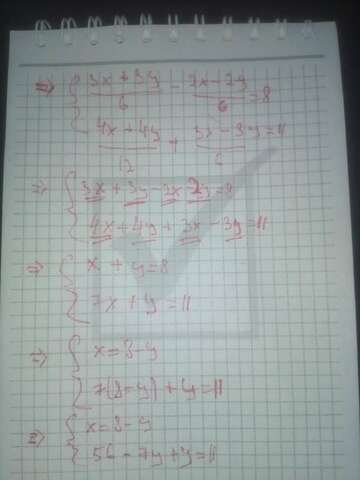 => { 3x + 3y / 6 - 2x - 2y / 6 = 8
4x + 4y / 12 + 3x - 3y / 6 = 11
=> { 3x + 3y - 2x 2y = 8
4x + 4y + 3x - 3y = 11
=> { x + y = 8
7x + y = 11
=> { x = 8 - y
7(8 - y) + y = 11
=> { x = 8 - y
56 - 7y + y = 11